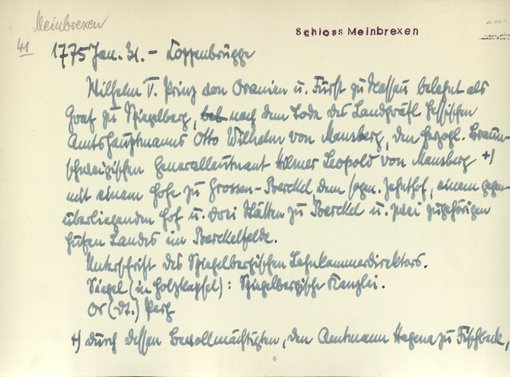 Meinbrexen
Schloss Meinbrexen
41
1775 Jan. 31. - Coppenbrügge
Wilhelm V. Prinz von Oranien u. Fürst zu Nassau belehnt als
Graf zu Spiegelberg, nach dem Tode des Landgräfl. Hessischen
Amtshauptmanns Otto Wilhelm von Mensberg, den Herzogl. Braun-
schweigischen Generalleutnant Hilmar Leopold von Mansberg +)
mit einem Hofe zu Grossen-Berckel dem sogen. Zehnthof, einem gegen-
überliegenden Hof u. drei Stätten zu Berckel u. zwei zugehörigen
Hufen Landes im Berckelfelde.
Unterschrift des Spiegelbergischen Lehnkammerdirektors.
Siegel (in Holzkapsel): Spiegelbergische Kanzlei.
Or (dt.) Perg
+) durch dessen Bevollmächtigten, den Amtmann Hagena zu Fischbeck,